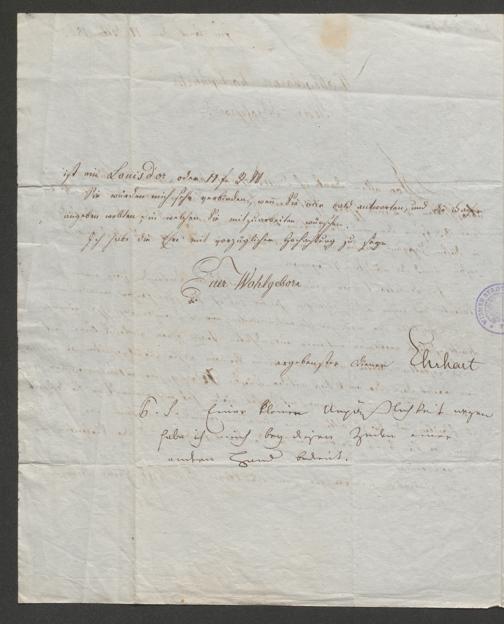 ist ein Louisd'or oder 11 f.
Sie würden mich sehr verbinden, wen Sie mir bald antworten, und die Fächer
angeben wollten, in welchen Sie mitzuarbeiten wünschen.
Ich habe die Ehre mit vorzüglicher Hochachtung zu seyn
Euer Wohlgeborn
ergebenster Diener Ehrhart
Einer kleinen Unpäßlichkeit wegen
habe ich mich bey diesen Zeilen einer
andern Hand bedient.